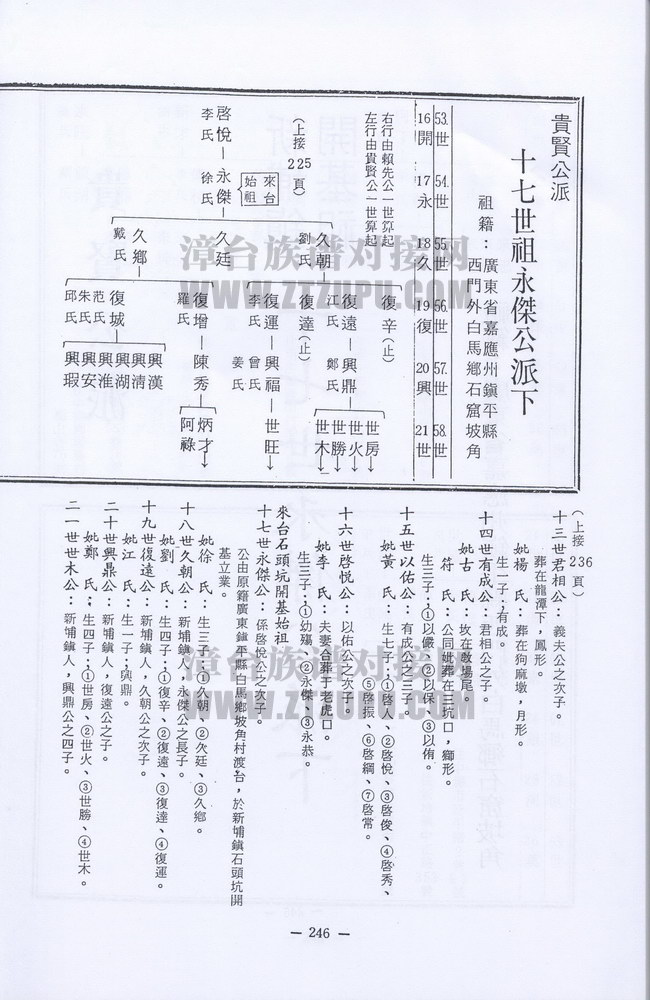 貴賢公派
十七世祖永傑公派下
祖籍：廣東省嘉應州鎮平縣
西門外白馬鄉石窟坡角
53.世 54.世 55.世 56.世 57.世 58.世
16開 17永 18久 19復 20興 21世
右行由賴先公一世算起
左行由貴賢公一世算起
（上接225頁）
啓悅—永傑
李氏 徐氏
來台始祖
久朝
劉氏
久廷
久鄉
戴氏
復辛（止）
復遠—興鼎
江氏 鄭氏
世房
世火
世勝
世木
復達（止）
復運—興福—世旺
李氏 曾氏
姜氏
復增—陳秀
羅氏
炳才
阿祿
復城
范氏
朱氏
邱氏
興漢
興清
興湖
興淮
興安
興瑕
（上接236頁）
十三世君相公：義夫公之次子。
葬在龍潭下，鳳形。
妣楊　氏：葬在狗麻墩，月形。
生一子；有成。
十四世有成公：君相公之子。
妣古　氏：坟在敬場尾。
符　氏：公同妣葬在三坑口，獅形。
生三子；①以儼、②以保、③以侑。
十五世以佑公：有成公之三子。
妣黃　氏：生七子；①啓人、②啓悅、③啓俊、④啓秀、
⑤啓振、⑥啓綱、⑦啓常。
十六世啓悅公：以佑公之次子。
妣李　氏：夫妻合葬于老虎口。
生三子；①幼殤、②永傑、③永恭。
來台石頭坑開基始祖
十七世永傑公：係啓悅公之次子。
公由原籍廣東鎮平縣白馬鄉坡角村渡台，於新埔鎮石頭坑開
基立業。
妣徐　氏：生三子；①久朝、②久廷、③久鄉。
十八世久朝公：新埔鎮人，永傑公之長子。
妣劉　氏：生四子；①復辛、②復遠、③復達、④復運。
十九世復遠公：新埔鎮人，久朝公之次子。
妣江　氏：生一子；興鼎。
二十世興鼎公：新埔鎮人，復遠公之子。
妣鄭　氏：生四子；①世房、②世火、③世勝、④世木。
二一世世木公：新埔鎮人，興鼎公之四子。
漳台族谱对接网
WWW.ZTZUPU.COM
漳台族谱对接网
WWW.ZTZUPU.COM
— 246 —